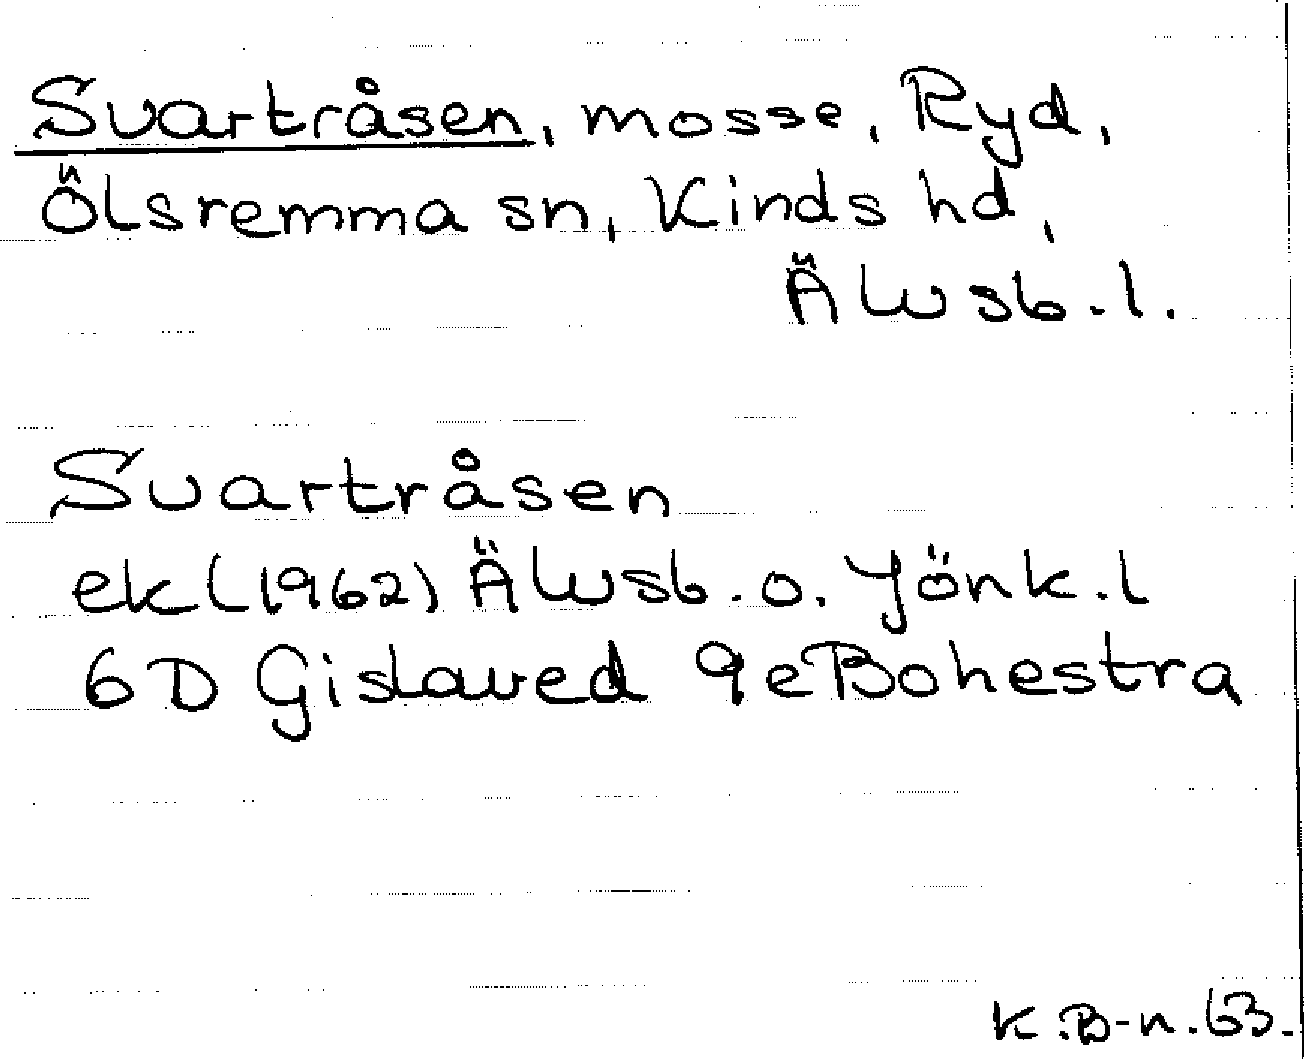 Svartråsen, mosse, Ryd,
Ölsremma sn, Kinds hd,
Älvsb. l.
Svartråsen
ek (1962) Älvsb. o. Jönk. l
6D Gislaved 9e Bohestra
K.B-n. 63.